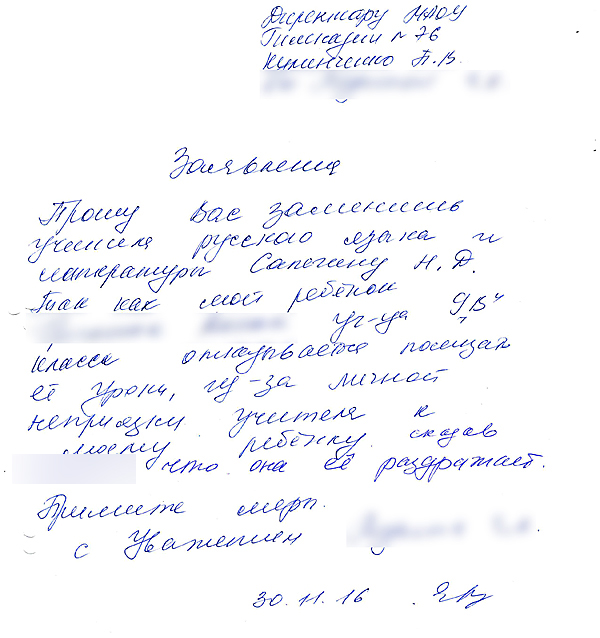 Директору МАОУ
Гимназии № 76
Килинченко П.В.
Заявления
Прошу Вас заменить
учителя русского языка и
литературы Сапегину Н. Д.
Так как мой ребёнок
уч-ца 9"В"
класса отказывается посещая
её уроки, из-за личной
неприязни учителя к
моему ребёнку сказав
что она её раздражает.
Примите меры.
с Уважением
30.11.16